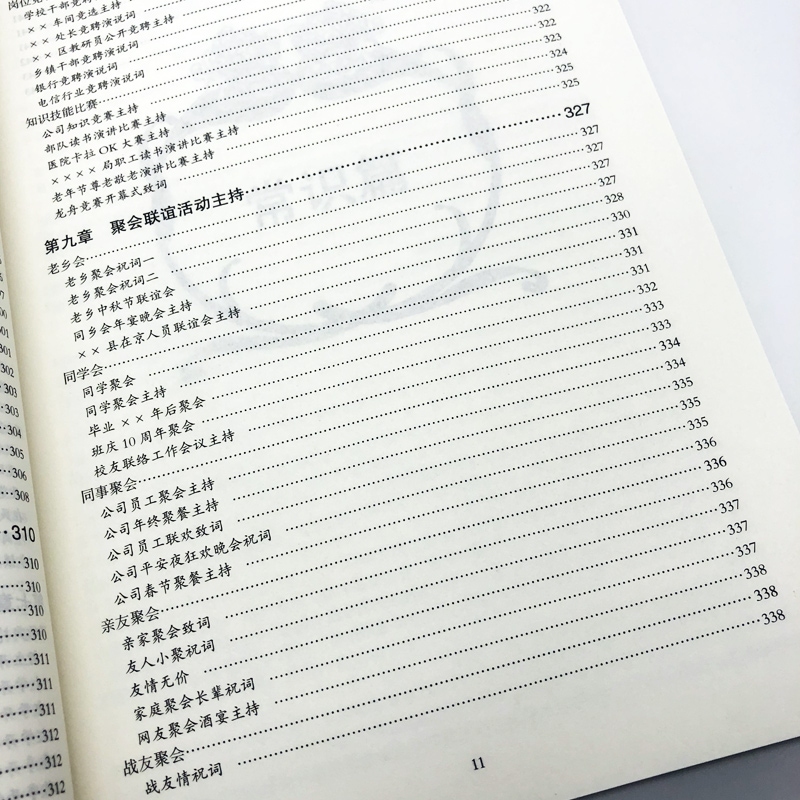 301
302
303
303
304
305
306
308
310
310
310
310
310
311
311
311
312
312
312
学校干部竞
×× 车间竞选主持
×× 处长竞聘演说词
×× 区教研员公开竞聘主持
乡镇干部竞聘演说词
银行竞聘演说词
电信行业竞聘演说词
知识技能比赛
公司知识竞赛主持 322
部队读书演讲比赛主持 322
医院卡拉 OK 大赛主持 323
×××× 局职工读书演讲比赛主持 324
老年节尊老敬老演讲比赛主持 325
龙舟竞赛开幕式致词 325
第九章 聚会联谊活动主持 327
老乡会 327
老乡聚会祝词一 327
老乡聚会祝词二 327
老乡中秋节联谊会 327
同乡会年宴晚会主持 328
×× 县在京人员联谊会主持 330
同学会 331
同学聚会 331
同学聚会主持 331
毕业 ×× 年后聚会 332
班庆 10 周年聚会 333
校友联络工作会议主持 333
同事聚会 334
公司员工聚会主持 334
公司年终聚餐主持 335
公司员工联欢致词 335
公司平安夜狂欢晚会祝词 335
公司春节聚餐主持 336
亲友聚会 336
亲家聚会致词 336
友人小聚祝词 337
友情无价 337
家庭聚会长辈祝词 337
网友聚会酒宴主持 338
战友聚会 338
战友情祝词 338
11